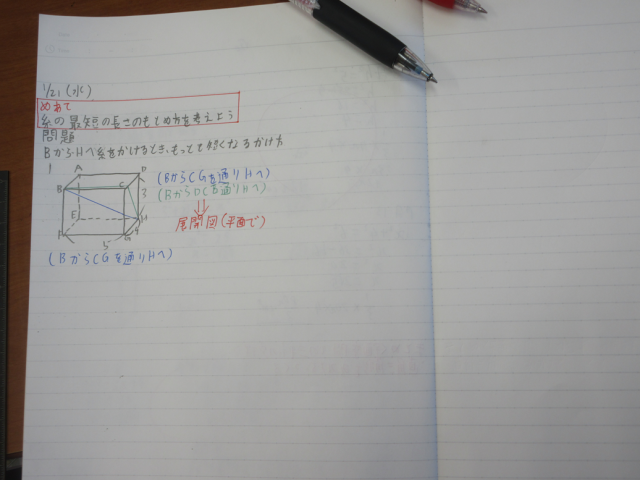 1/21 (水)
めあて
糸の最短の長さのもとめ方を考えよう
問題
BからHへ糸をかけるとき、もっとも短くなるかけ方
1
A
D
B
C
3
E
H
4
F
G
5
(BからCGを通りHへ)
(BからDCを通りHへ)
展開図(平面で)
(BからCGを通りHへ)